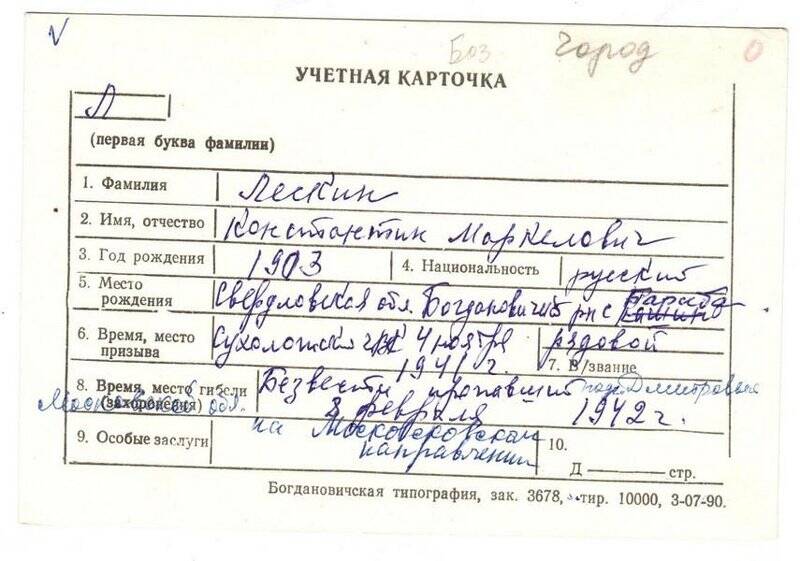 Боз город О
УЧЕТНАЯ КАРТОЧКА
Л
(первая буква фамилии)
1. Фамилия Лескин
2. Имя, отчество Константин Маркелович
3. Год рождения 1903 4. Национальность русский
5. Место рождения Свердловская обл. Богданович р-н с
6. Время, место призыва Сухоложский РВК 4 ноября 1941 г. рядовой
7. В/звание
8. Время, место гибели (захоронения) Безвести пропавший 8 февраля 1942 г.
Московской обл.
9. Особые заслуги на Московском направлении
10.
Д стр.
Богдановичская типография, зак. 3678, тир. 10000, 3-07-90.